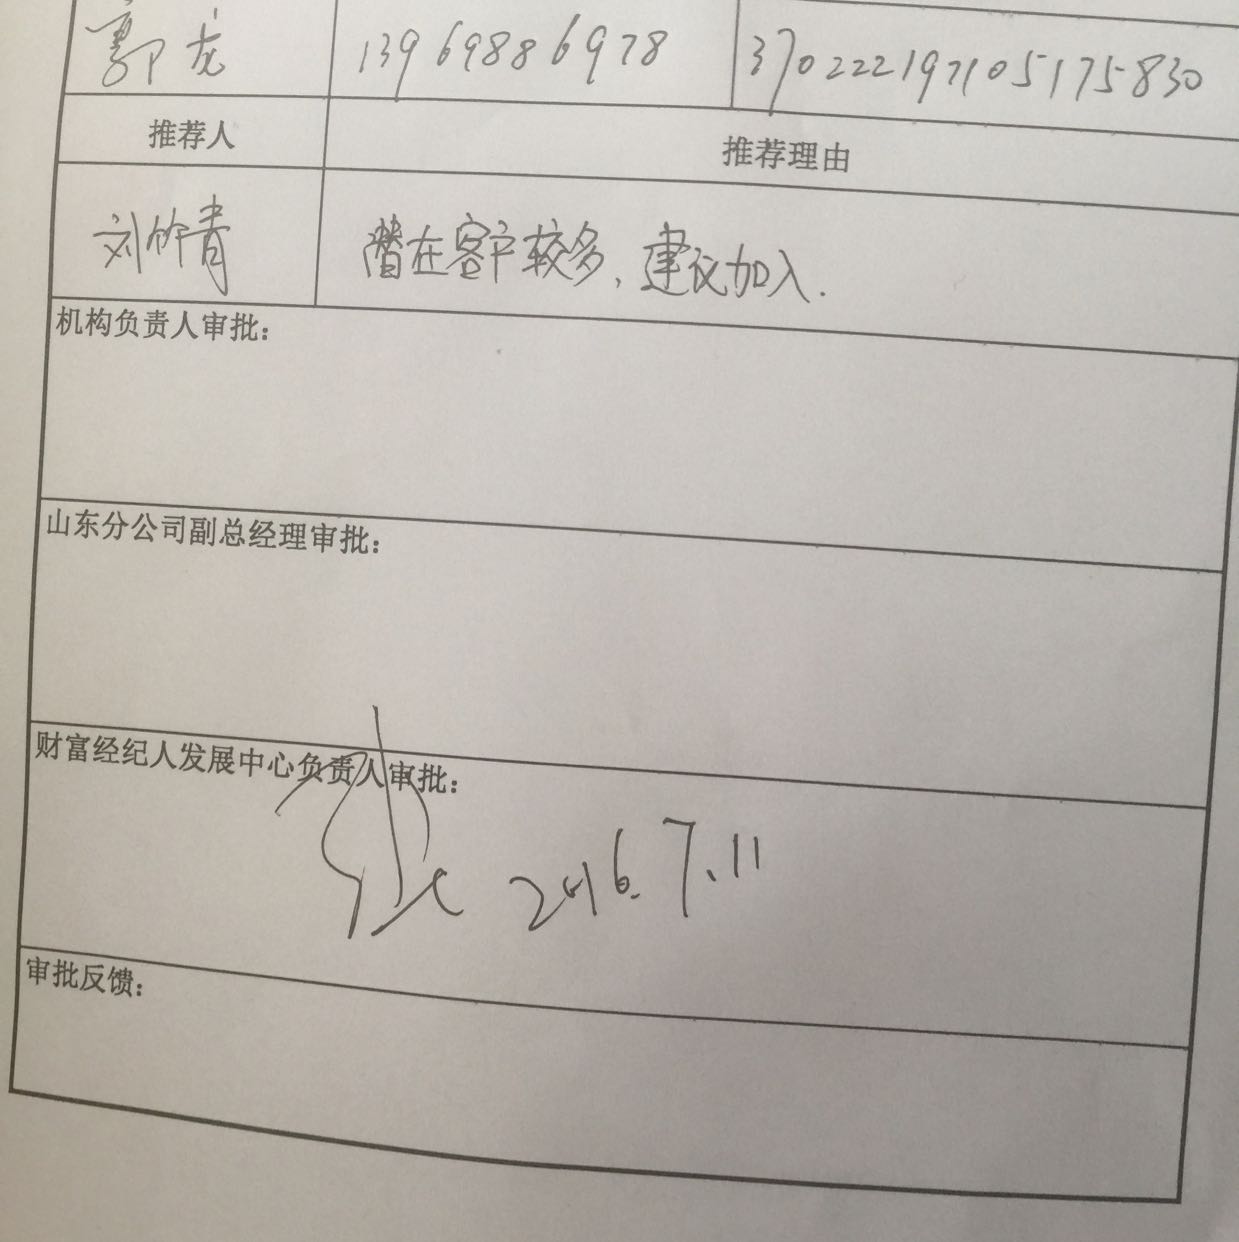 郭龙 13969886978 370222197105175830
推荐人 推荐理由
刘竹青 潜在客户较多,建议加入.
机构负责人审批:
山东分公司副总经理审批:
财富经纪人发展中心负责人审批:
2016.7.11
审批反馈: